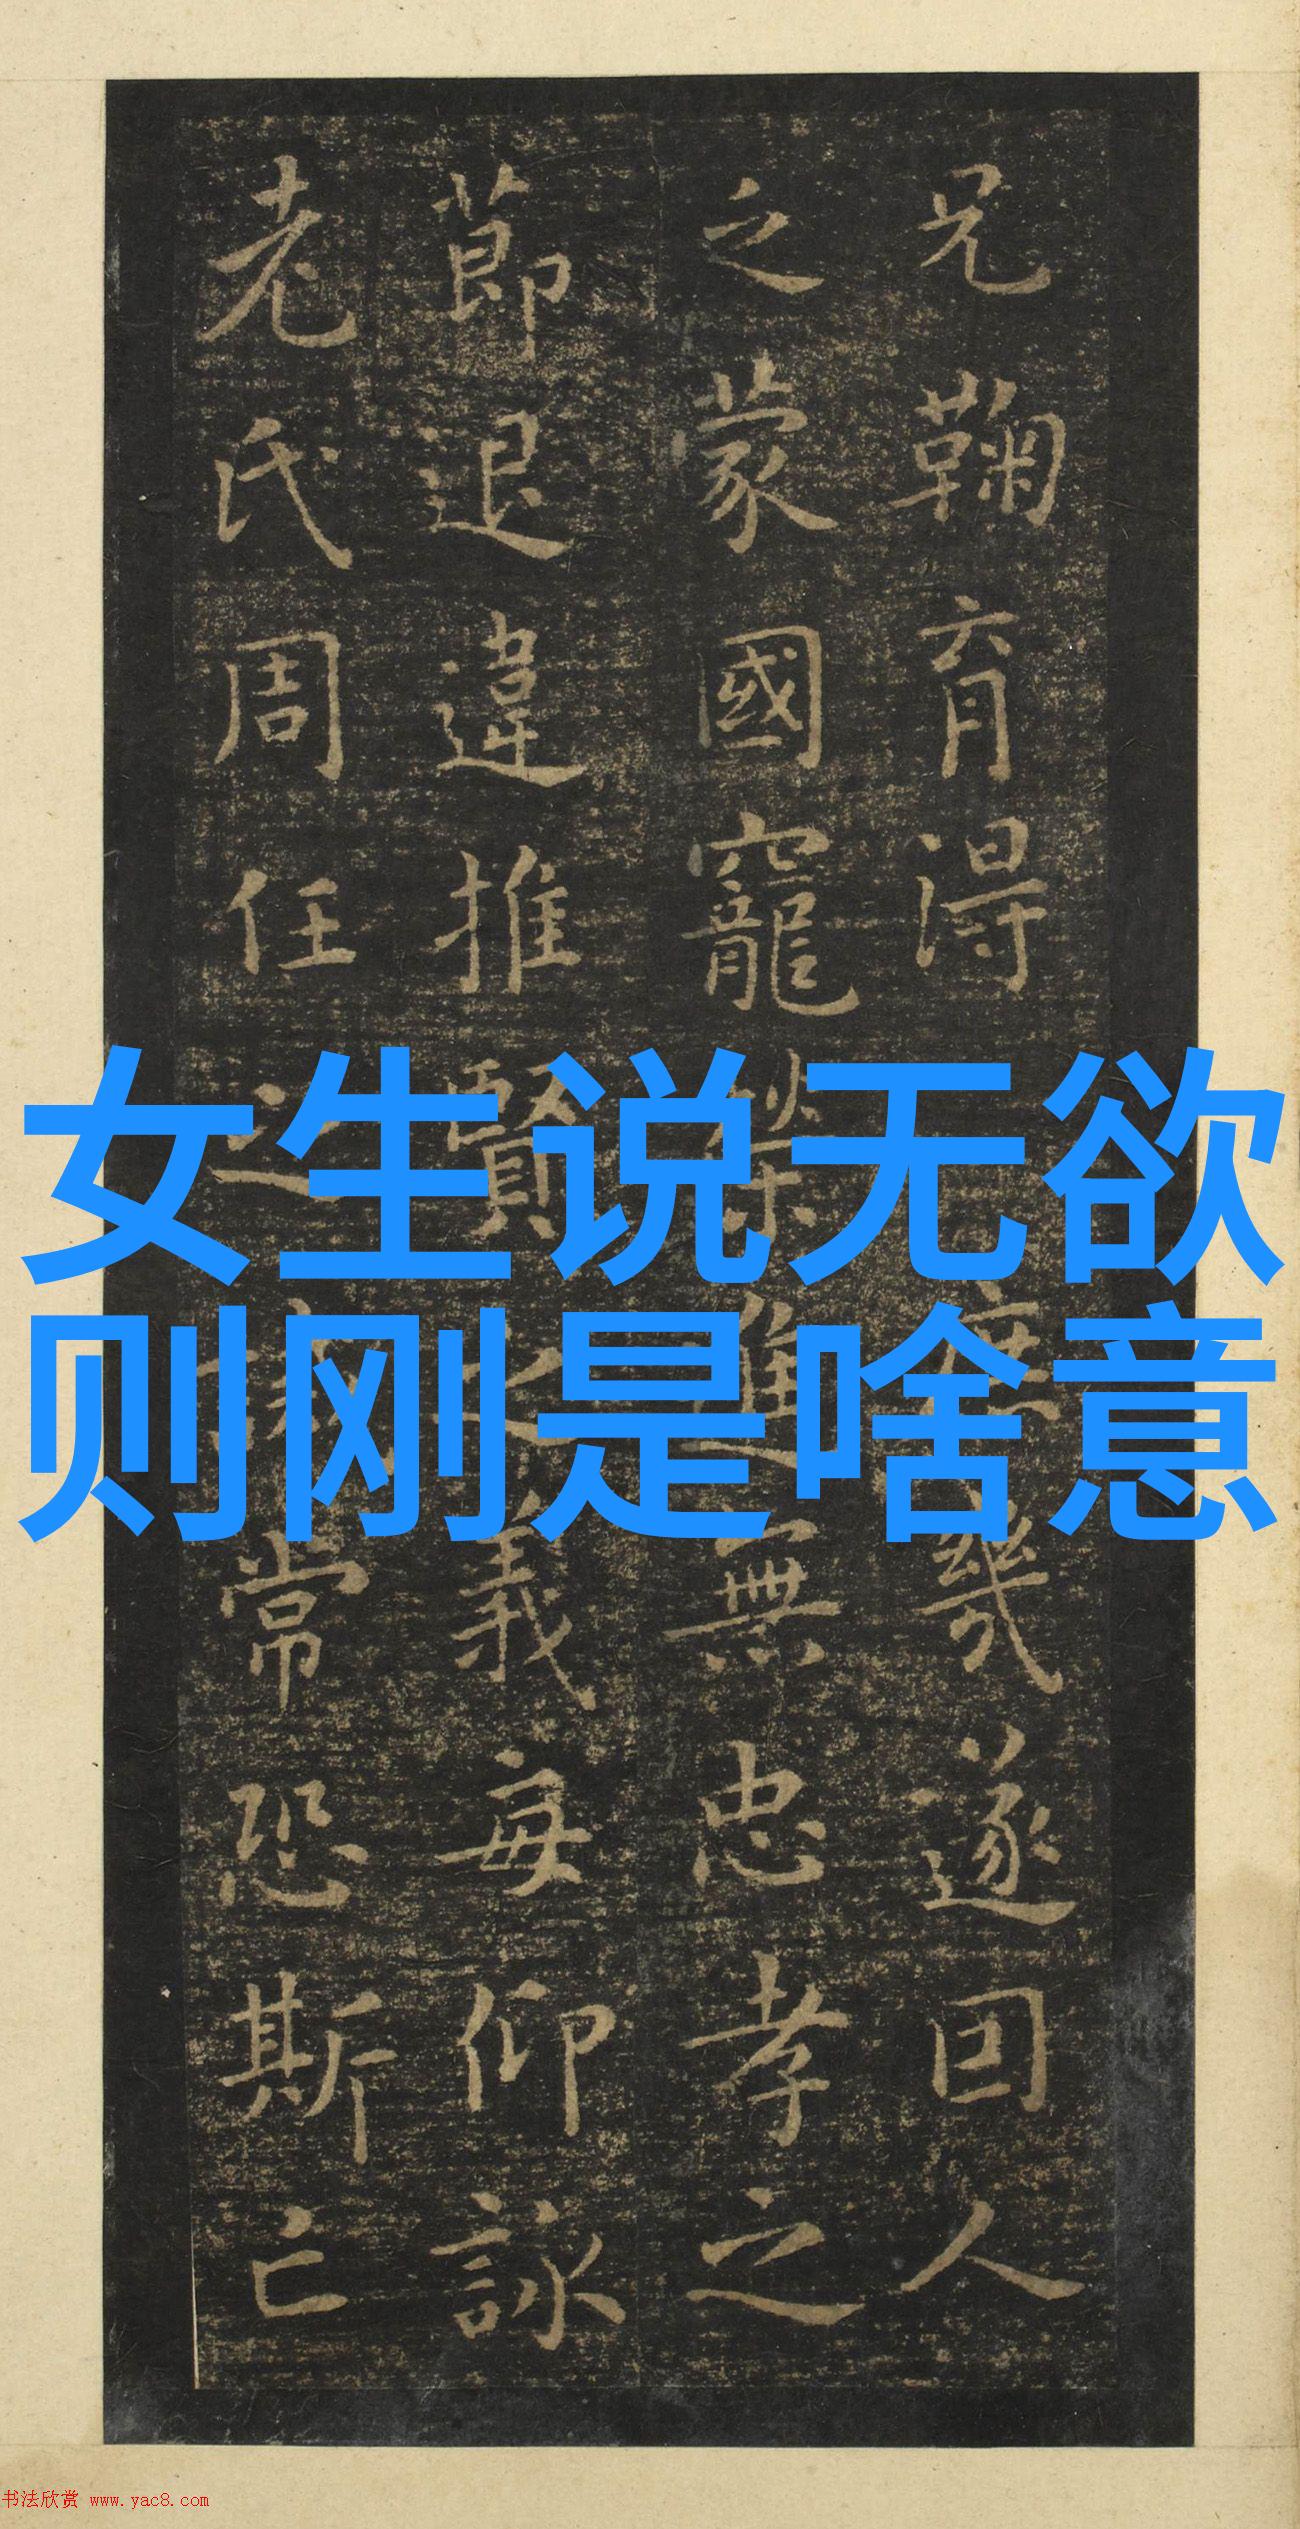 兄鞠育得庶幾遂因人
之蒙國寵榮進無忠孝之
節退違推賢之義每仰詠
老氏周任之誡常恐斯亡
女生说无欲
则刚是啥意
书法欣赏 www.yac8.com